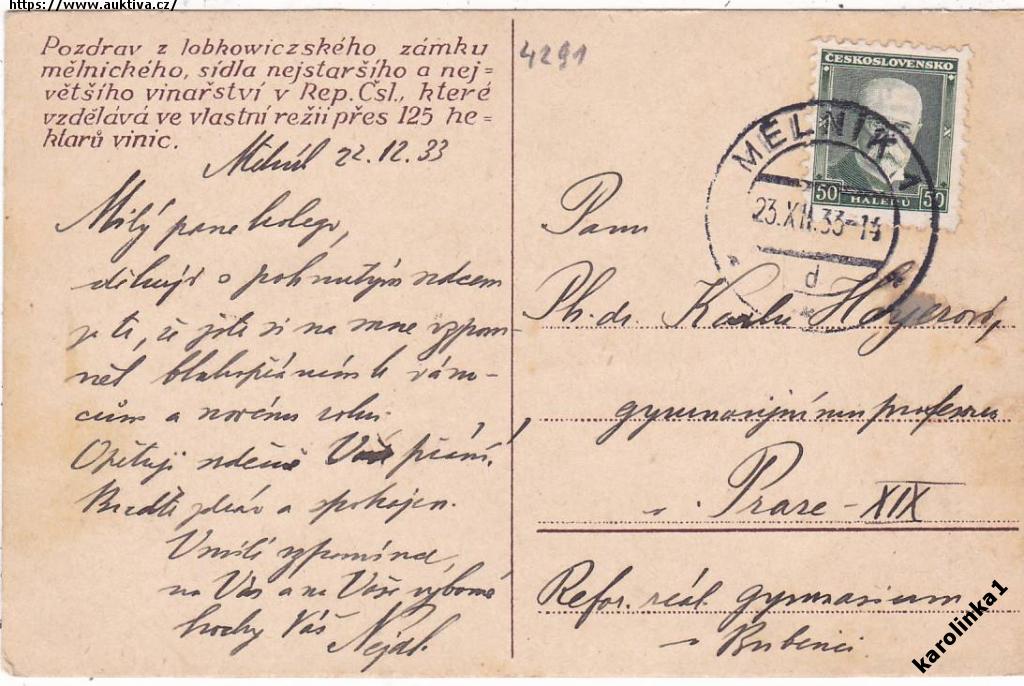 https://www.auktiva.cz/
Pozdrav z lobkowiczského zámku
mělnického, sídla nejstaršího a nej=
většího vinařství v Rep. Čsl., které
vzdělává ve vlastní režii přes 125 he=
ktarů vinic.
Mělník 22.12.33
Milý pane kolego,
děkuji s pohnutým srdcem
že jste si na mne vzpom-
něl blahopřáním k váno-
cům a novému roku.
Opětuji srdečně Vaše přání.
Buďte zdráv a spokojen.
Vzpomíná
na Vás a na Vaše výborné
hochy Váš
4291
ČESKOSLOVENSKO
50 HALÉŘŮ 50
MĚLNÍK 1
23.XII.33-14
d
Pan
Ph. dr.
gymnasijnímu profesoru
v Praze - XIX
Refor. reál. gymnasium
v Bubenči
karolinka1